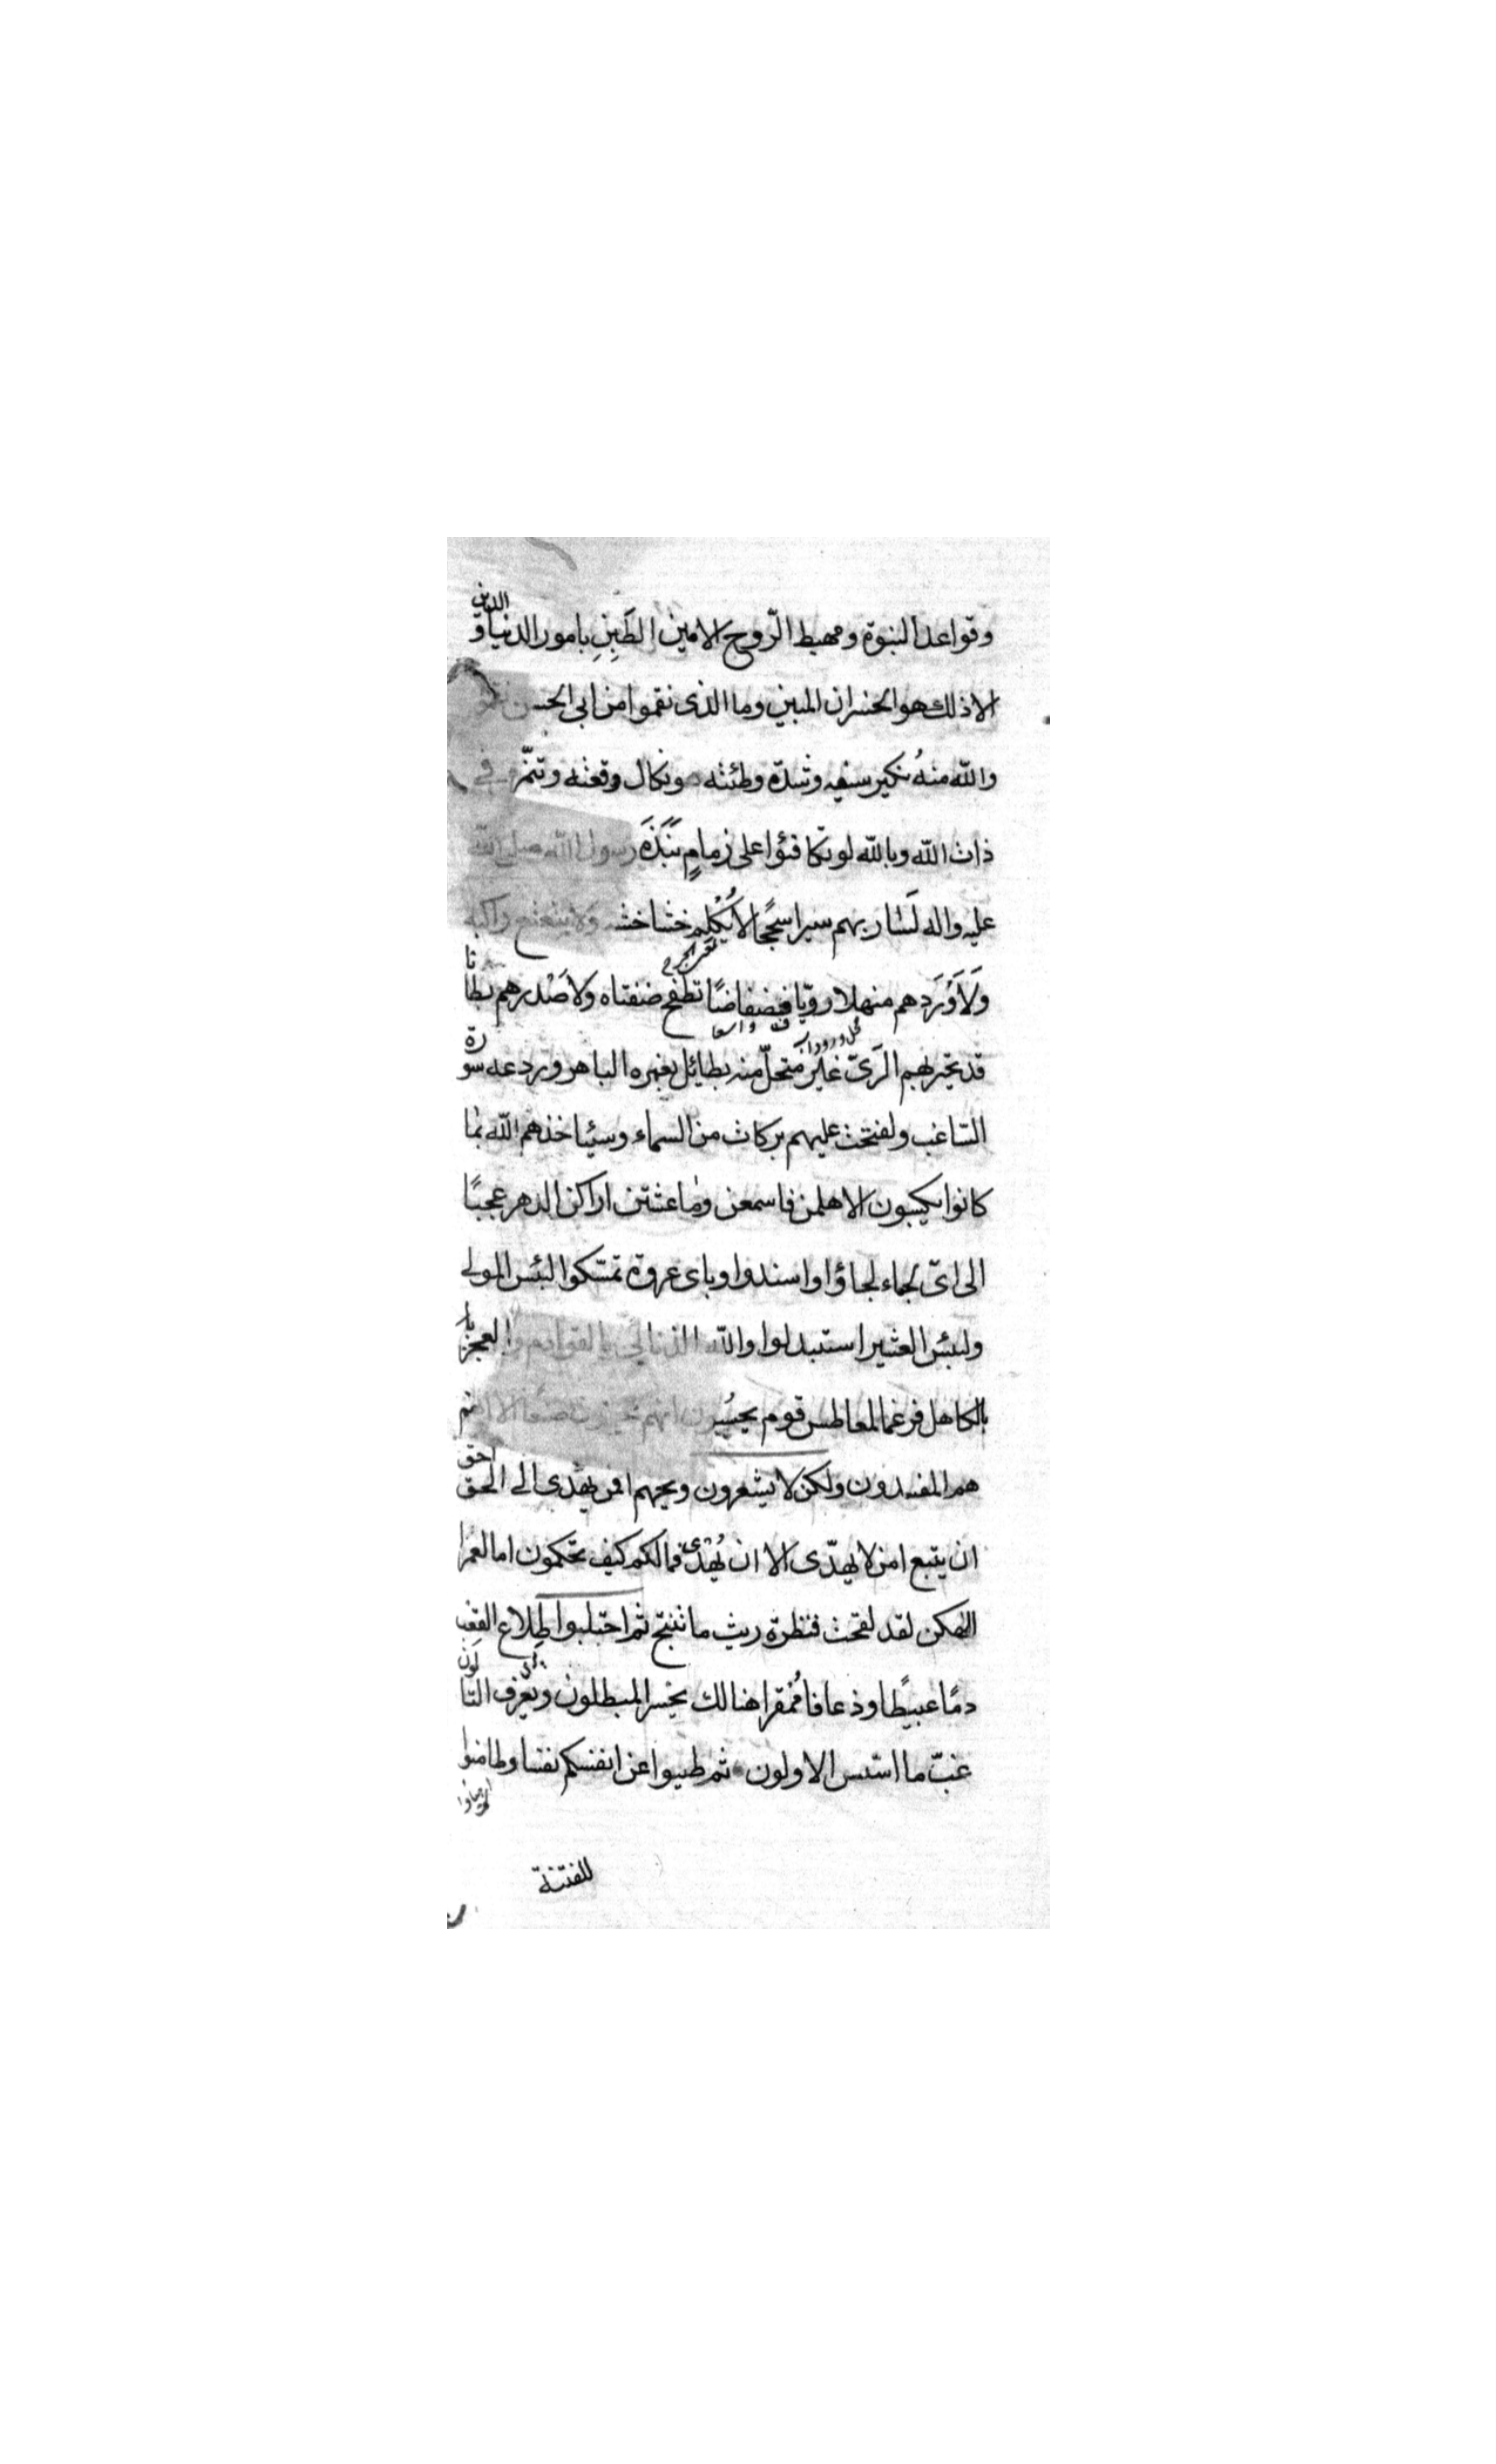 وقواعد النبوة ومهبط الرّوح الامين الطَبِينِ بامور الدنيا وَ الدين
الا ذلك هو الخسران المبين وما الذى نقموا من ابى الحسن نقموا
والله منهُ نكير سيفه وشدّة وطئته ونكال وقعته وتنمّره في
ذات الله وبالله لو تكافئوا على زمامٍ نَبَذَهَ رسول الله صلى الله
عليه واله لَسَار بهم سيرا سجحًا لا يُكْلِم خشاخشه ولا يتعتع راكبه
وَلَاَوْرَدهم منهلا رويّا فضفاضًا تطفح ضفتاه ولاصْدرهم بطانا
قد تخير لهم الرّىّ غَيْر متحلّ منه بطائل بغمره الباهر وردعه سورة
الساغب ولفتحت عليهم بركات من السماء وسيأخذهم الله بما
كانوا يكسبون الا هلمن فاسمعن وما عشتن اراكن الدهر عجبًا
الى اىّ لجاء لجاؤا واسندوا وباى عروة تمسّكوا لبئس المولى
ولبئس العشير استبدلوا والله الذنابى بالقوادم والعجز
بالكاهل فرغما لمعاطس قوم يحسَبون انهم يحسنون صنعا الا انهم
هم المفسدون ولكن لا يشعرون ويحهم افمن يهْدى الى الحق احق
ان يتبع امن لا يهدّى الا ان يُهْدى فمالكم كيف تحكمون اما لعمر
الهكن لقد لقحت فنظرة ريث ما تنتج ثم احتلبوا طِلاع القعب
دمًا عبيطًا وذعافا مُمقرا هنالك يخسر المبطلون ويَعْرف التالون
غبّ ما اسّس الاولون ثم طيبوا عن انفسكم نفسا وطامنوا
للفتنة